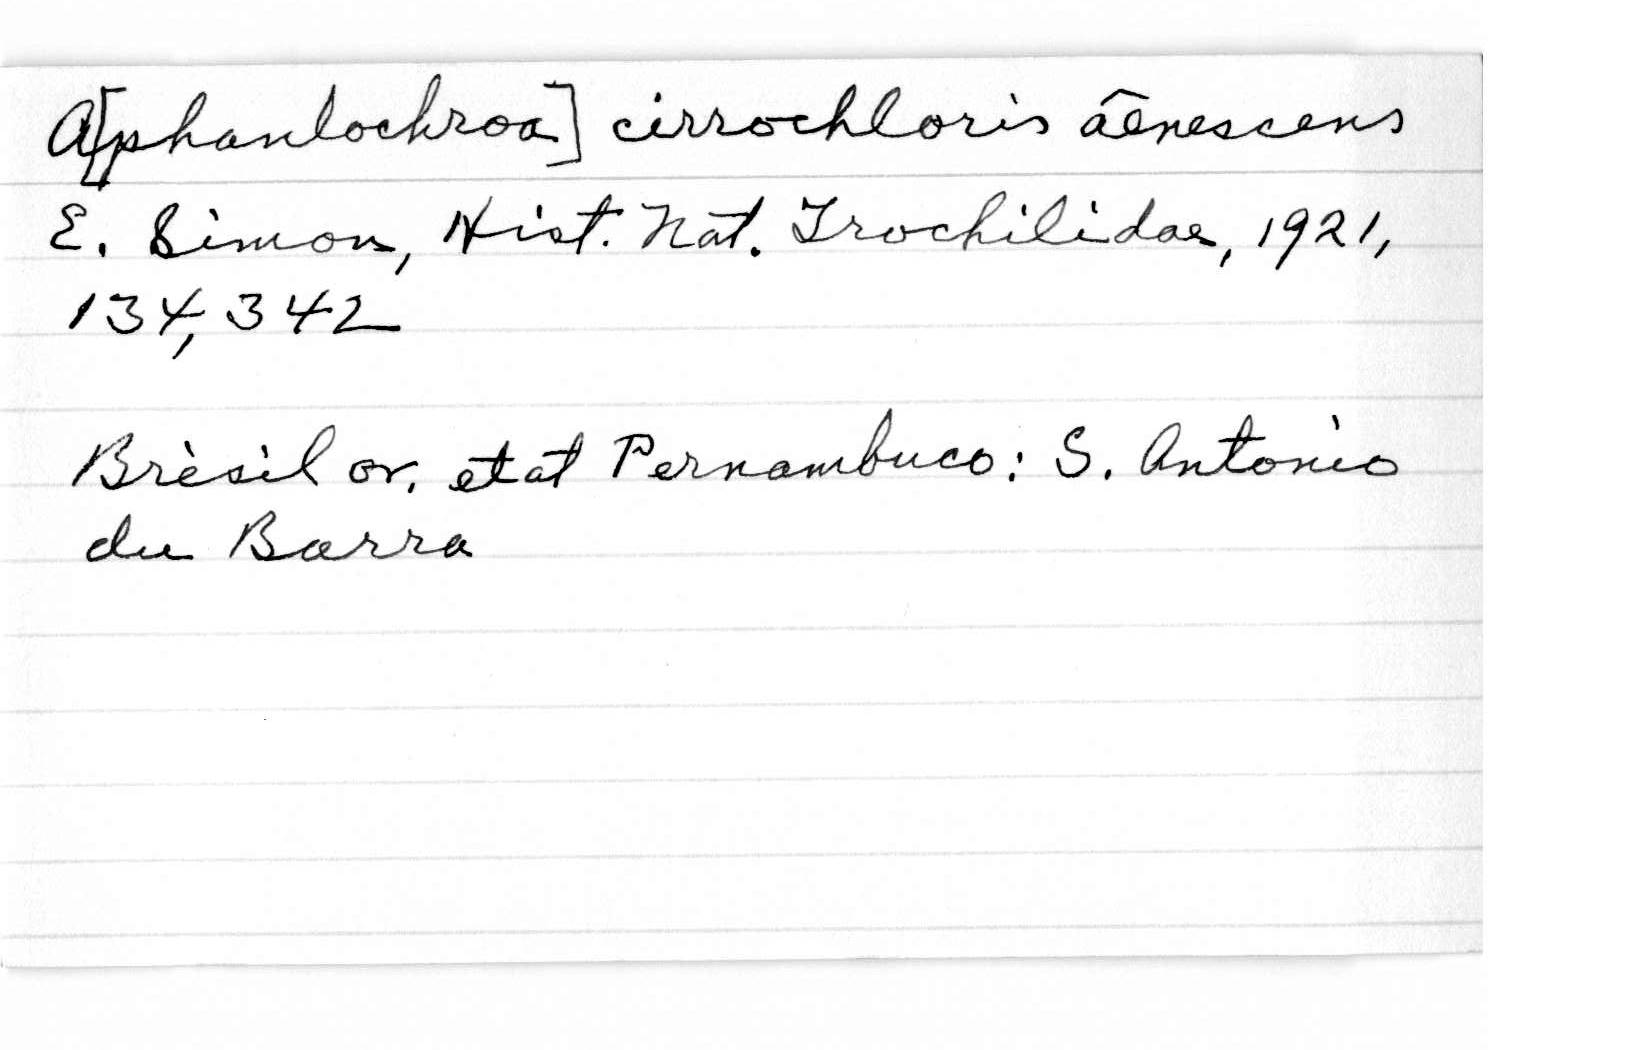 A[phanlochroa] cirrochloris aēnescens
E. Simon, Hist. Nat. Trochilidae, 1921,
134, 342
Brèsil or. etat Pernambuco: S. Antonio
du Barra